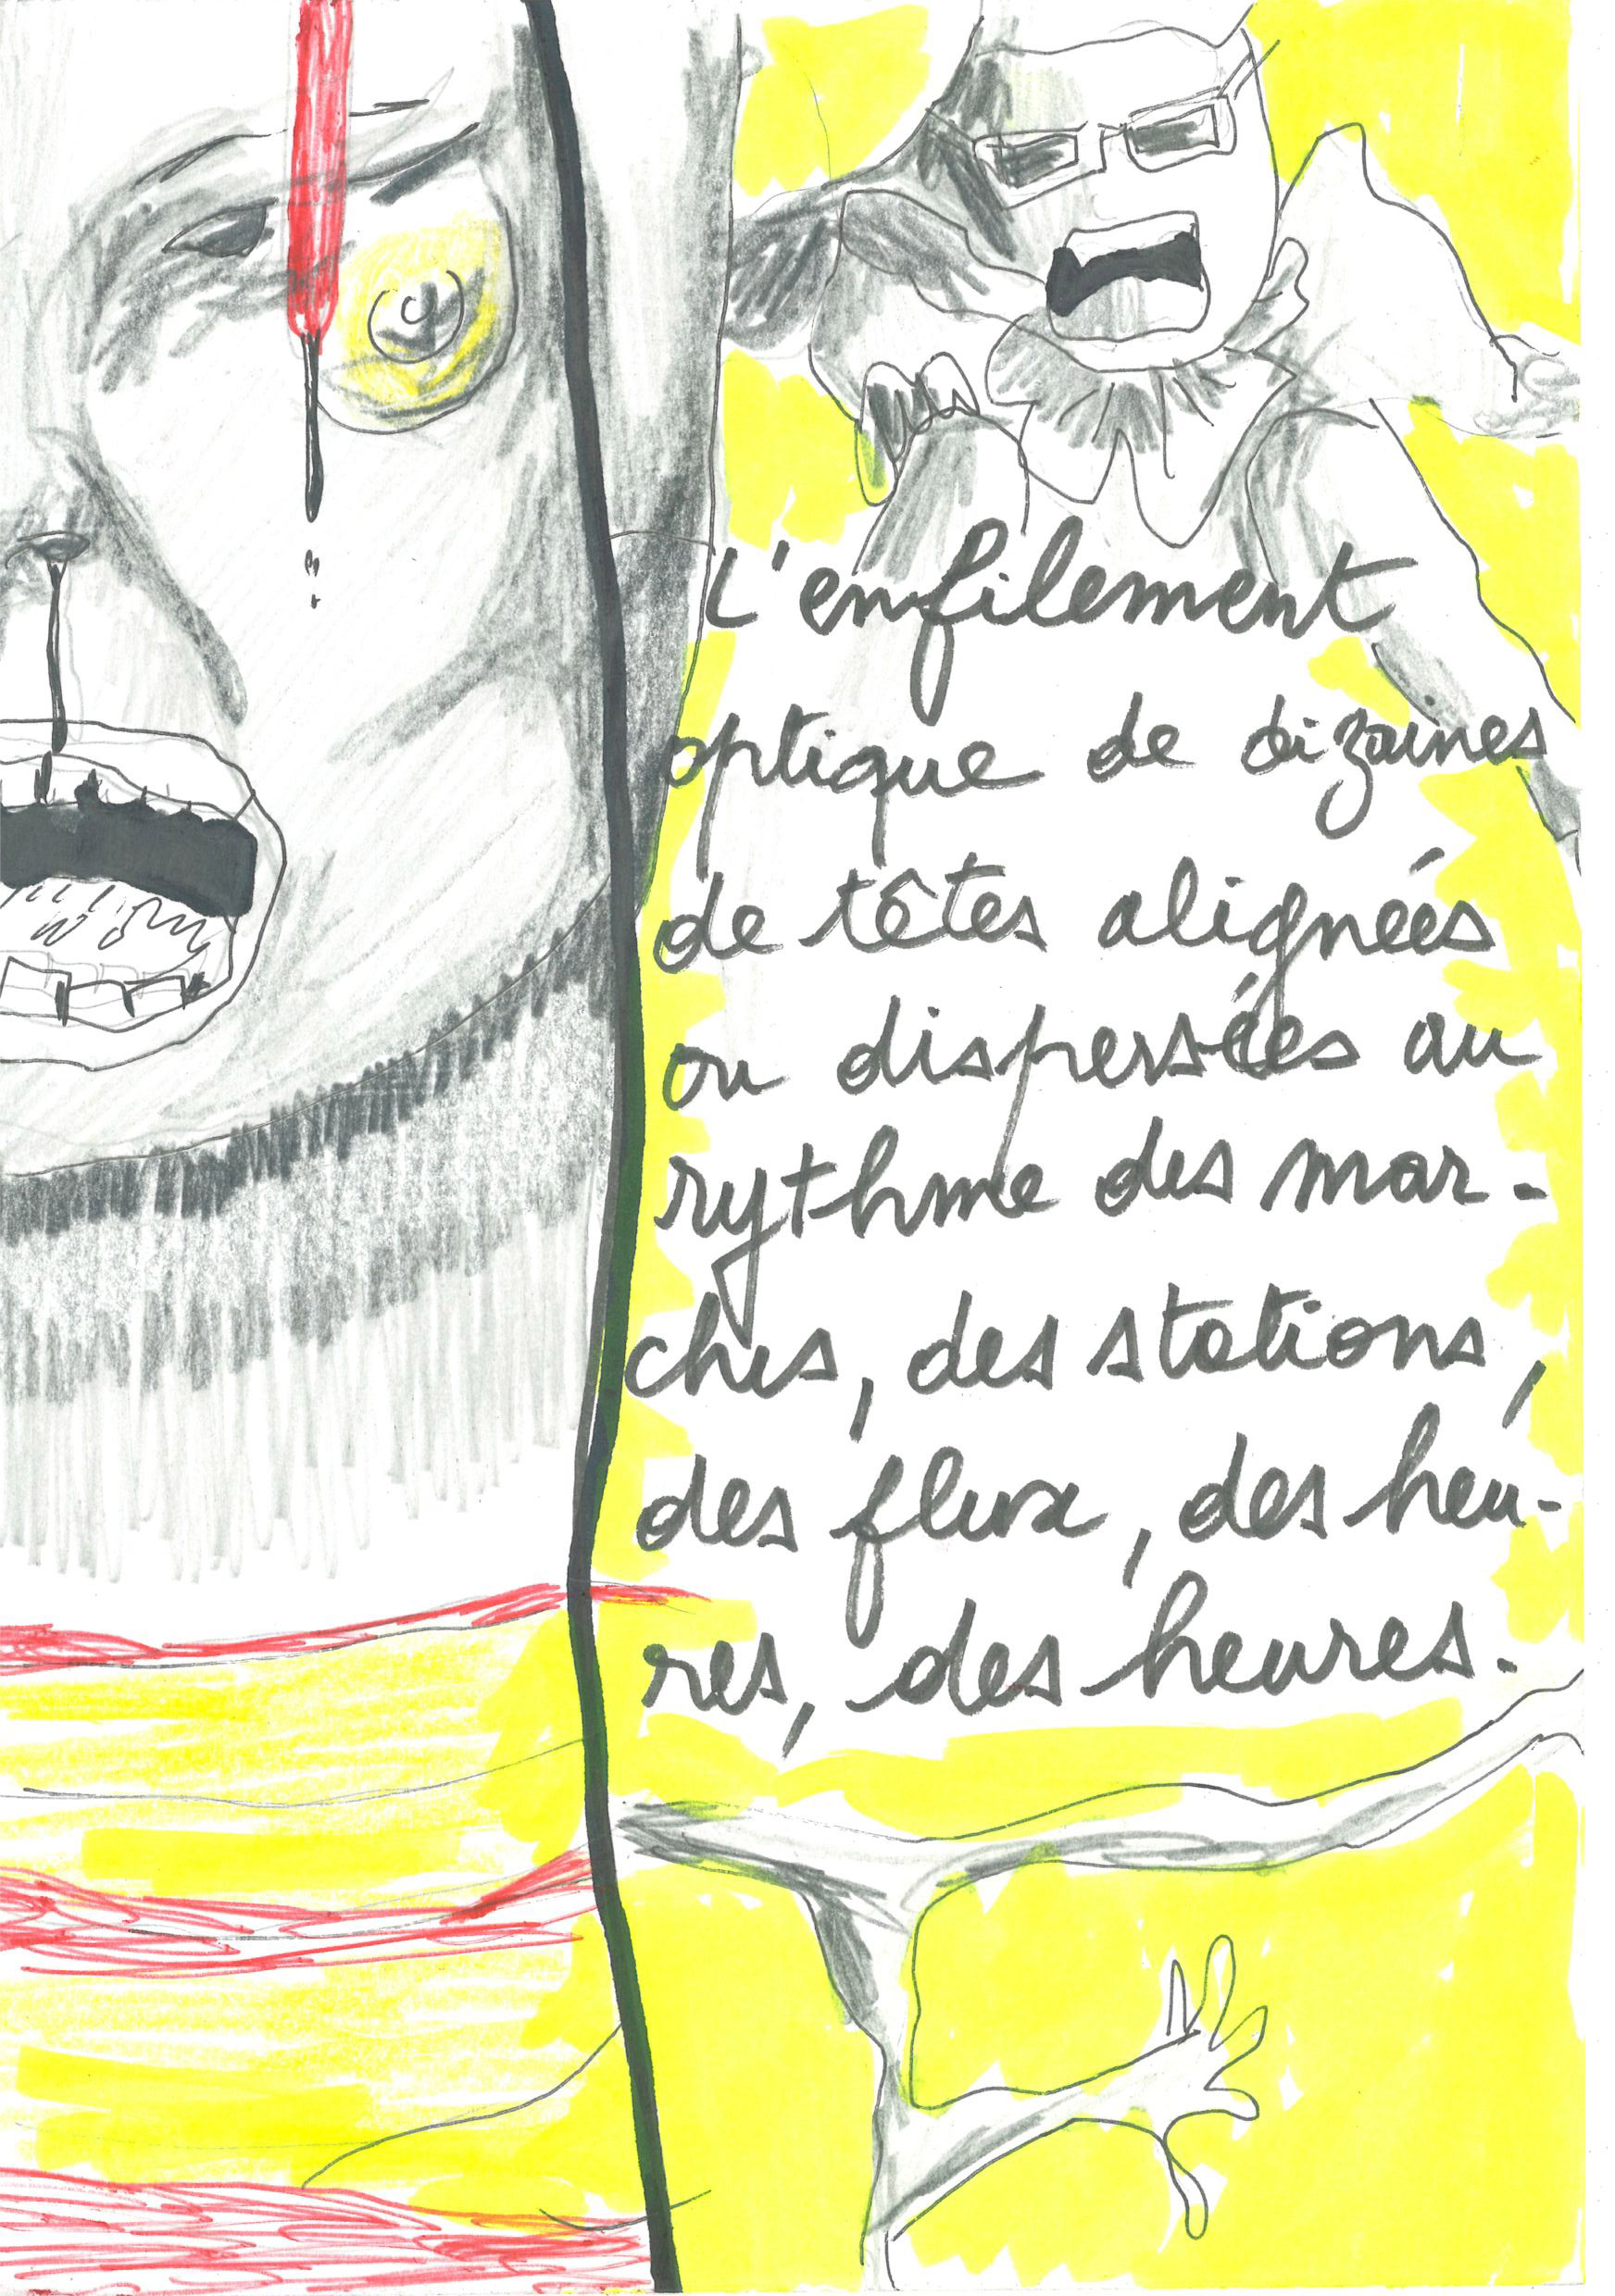 L'enfilement
optique de dizaines
de têtes alignées
ou dispersées au
rythme des mar-
ches, des stations,
des flux, des heu-
res, des heures.